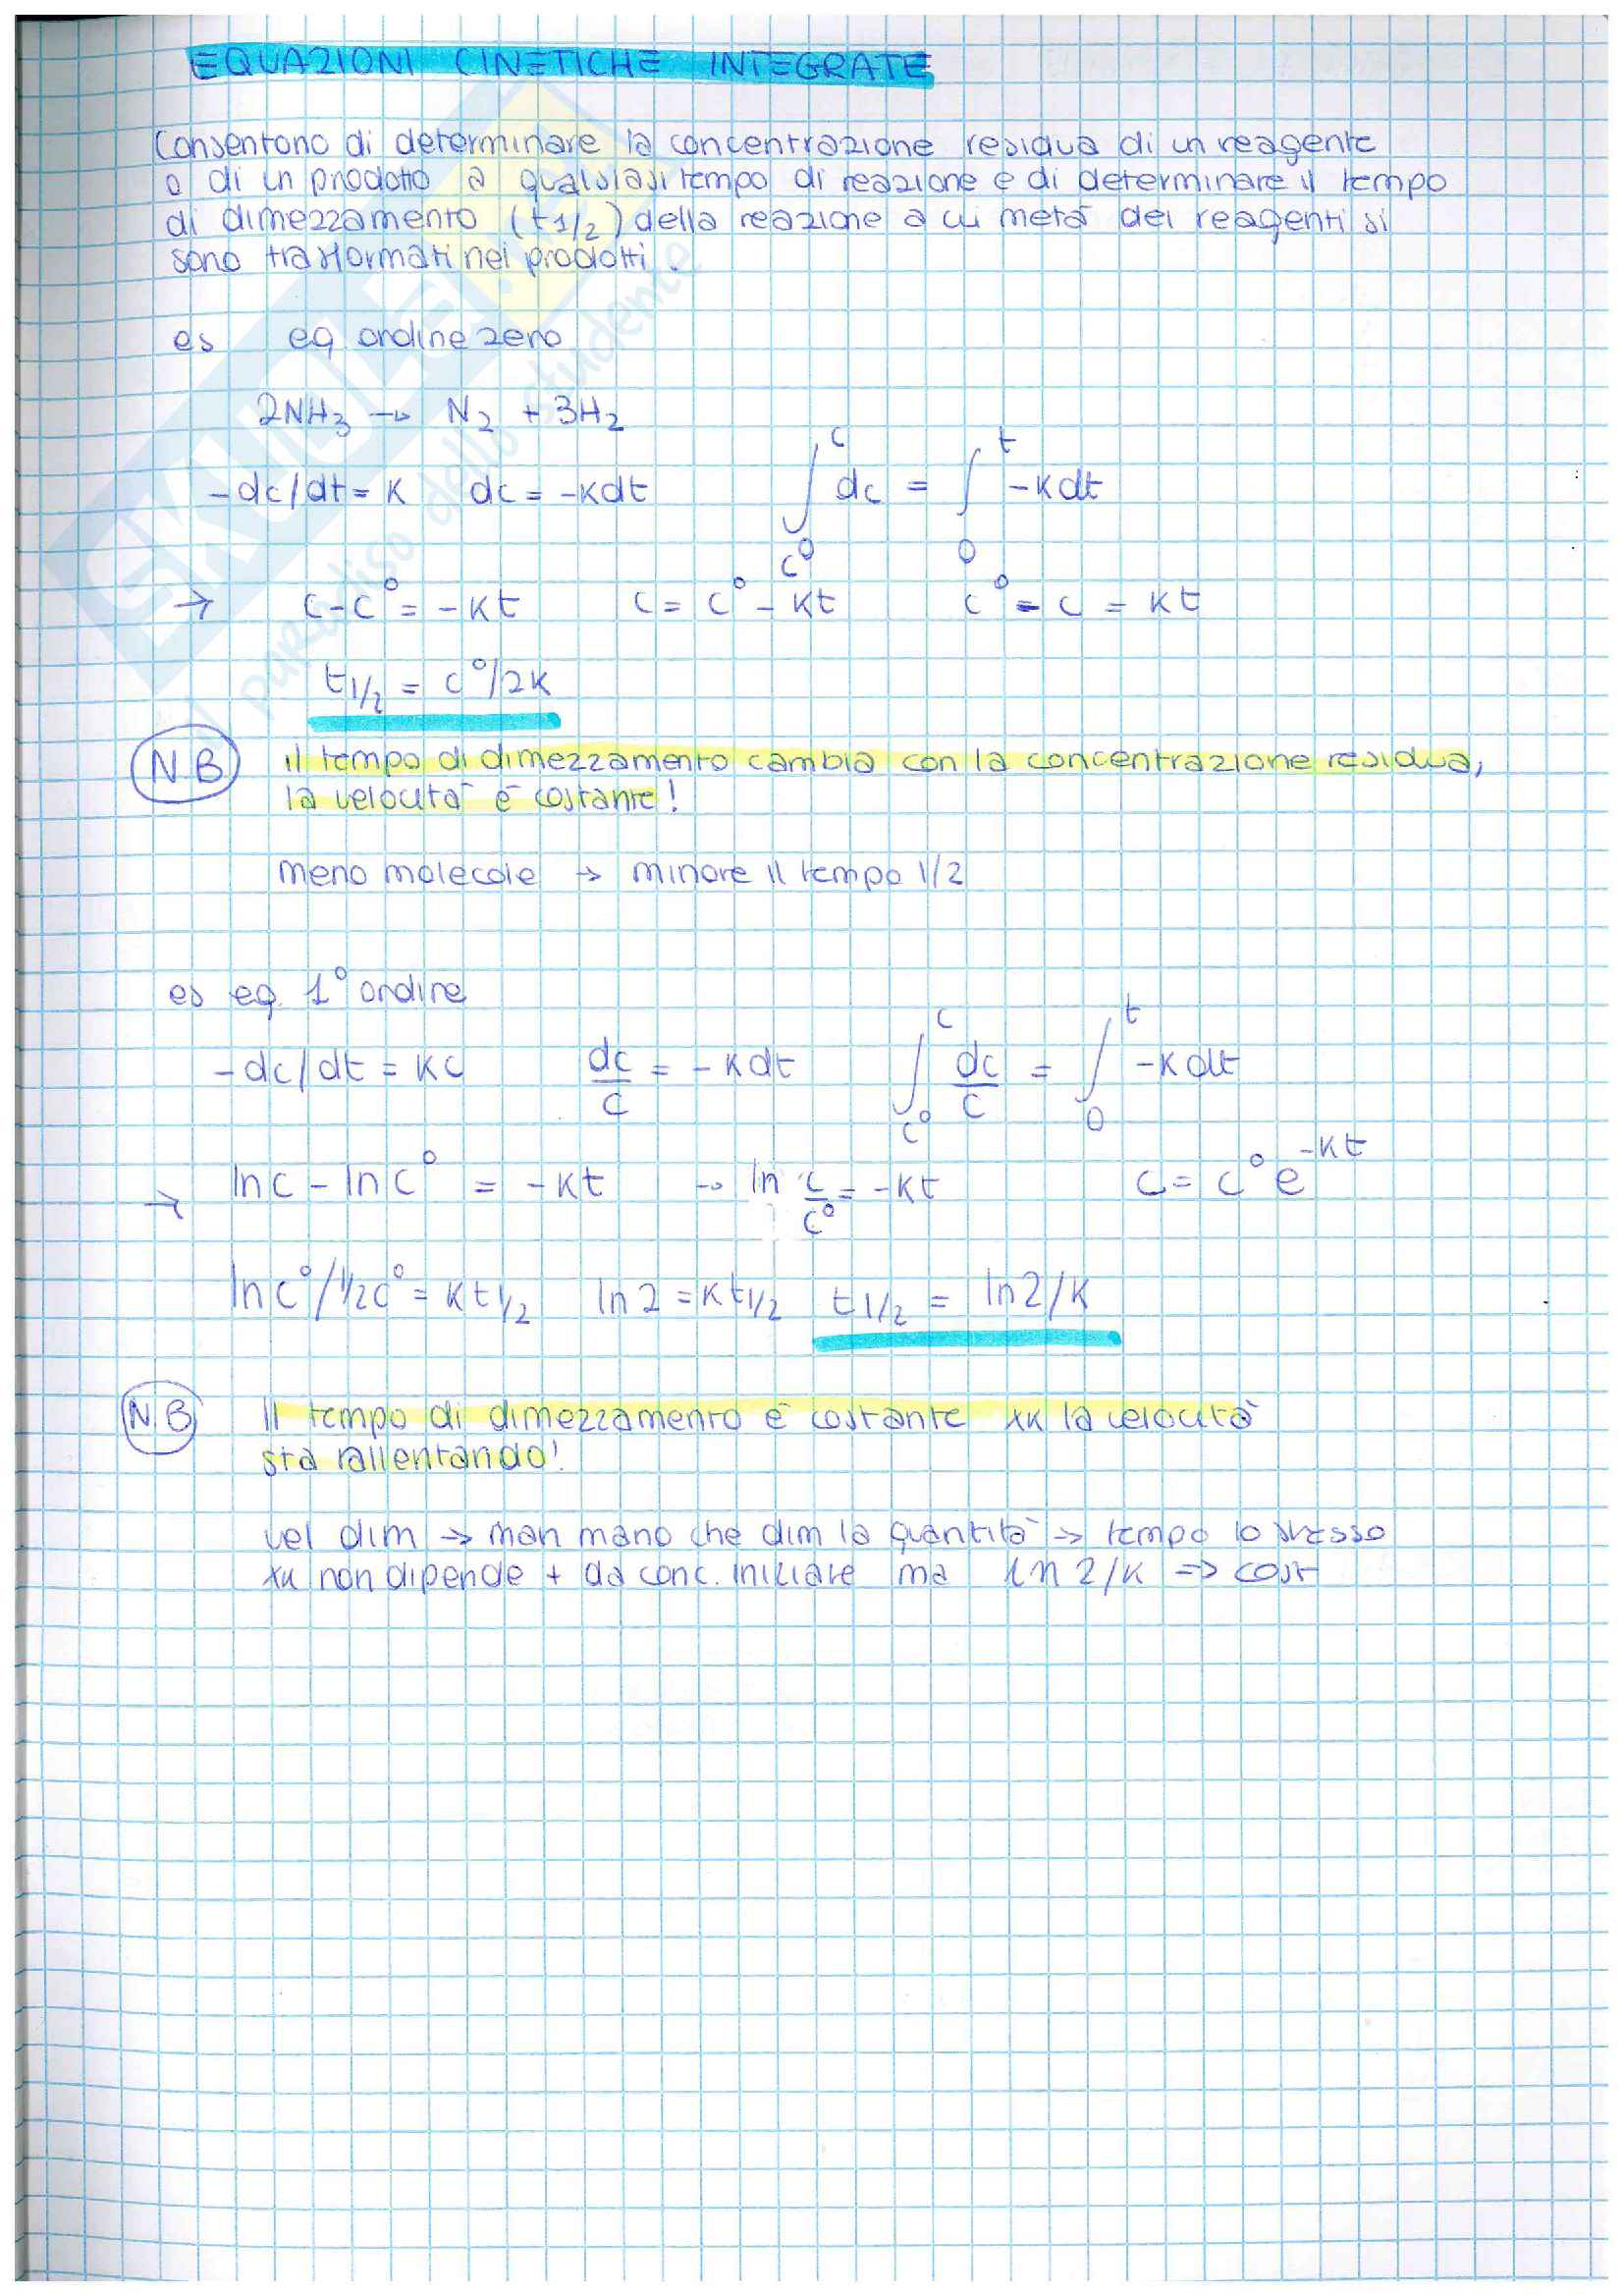 EQUAZIONI CINETICHE INTEGRATE
Consentono di determinare la concentrazione residua di un reagente
o di un prodotto a qualsiasi tempo di reazione e di determinare il tempo
di dimezzamento (t1/2) della reazione a cui metà dei reagenti si
sono trasformati nei prodotti.
es eq ordine zero
2NH₃ → N₂ + 3H₂
-dc/dt = K dc = -Kdt ∫ c c⁰ dc = ∫ t 0 -Kdt
→ c-c⁰ = -Kt c = c⁰ - Kt c⁰ - c = Kt
t1/2 = c⁰/2K
N.B il tempo di dimezzamento cambia con la concentrazione residua,
la velocità è costante!
meno molecole → minore il tempo 1/2
es eq. 1° ordine
-dc/dt = Kc dc/c = -Kdt ∫ c c⁰ dc/c = ∫ t 0 -Kdt
→ ln c - ln c⁰ = -Kt → ln c/c⁰ = -Kt c = c⁰ e^-Kt
ln c⁰/½c⁰ = Kt1/2 ln2 = Kt1/2 t1/2 = ln2/K
N.B Il tempo di dimezzamento è costante xk la velocità
sta rallentando!
vel dim → man mano che dim la quantità → tempo lo stesso
xk non dipende + da conc. iniziale ma ln2/K => cost
SKUOLA.net
il paradiso dello studente